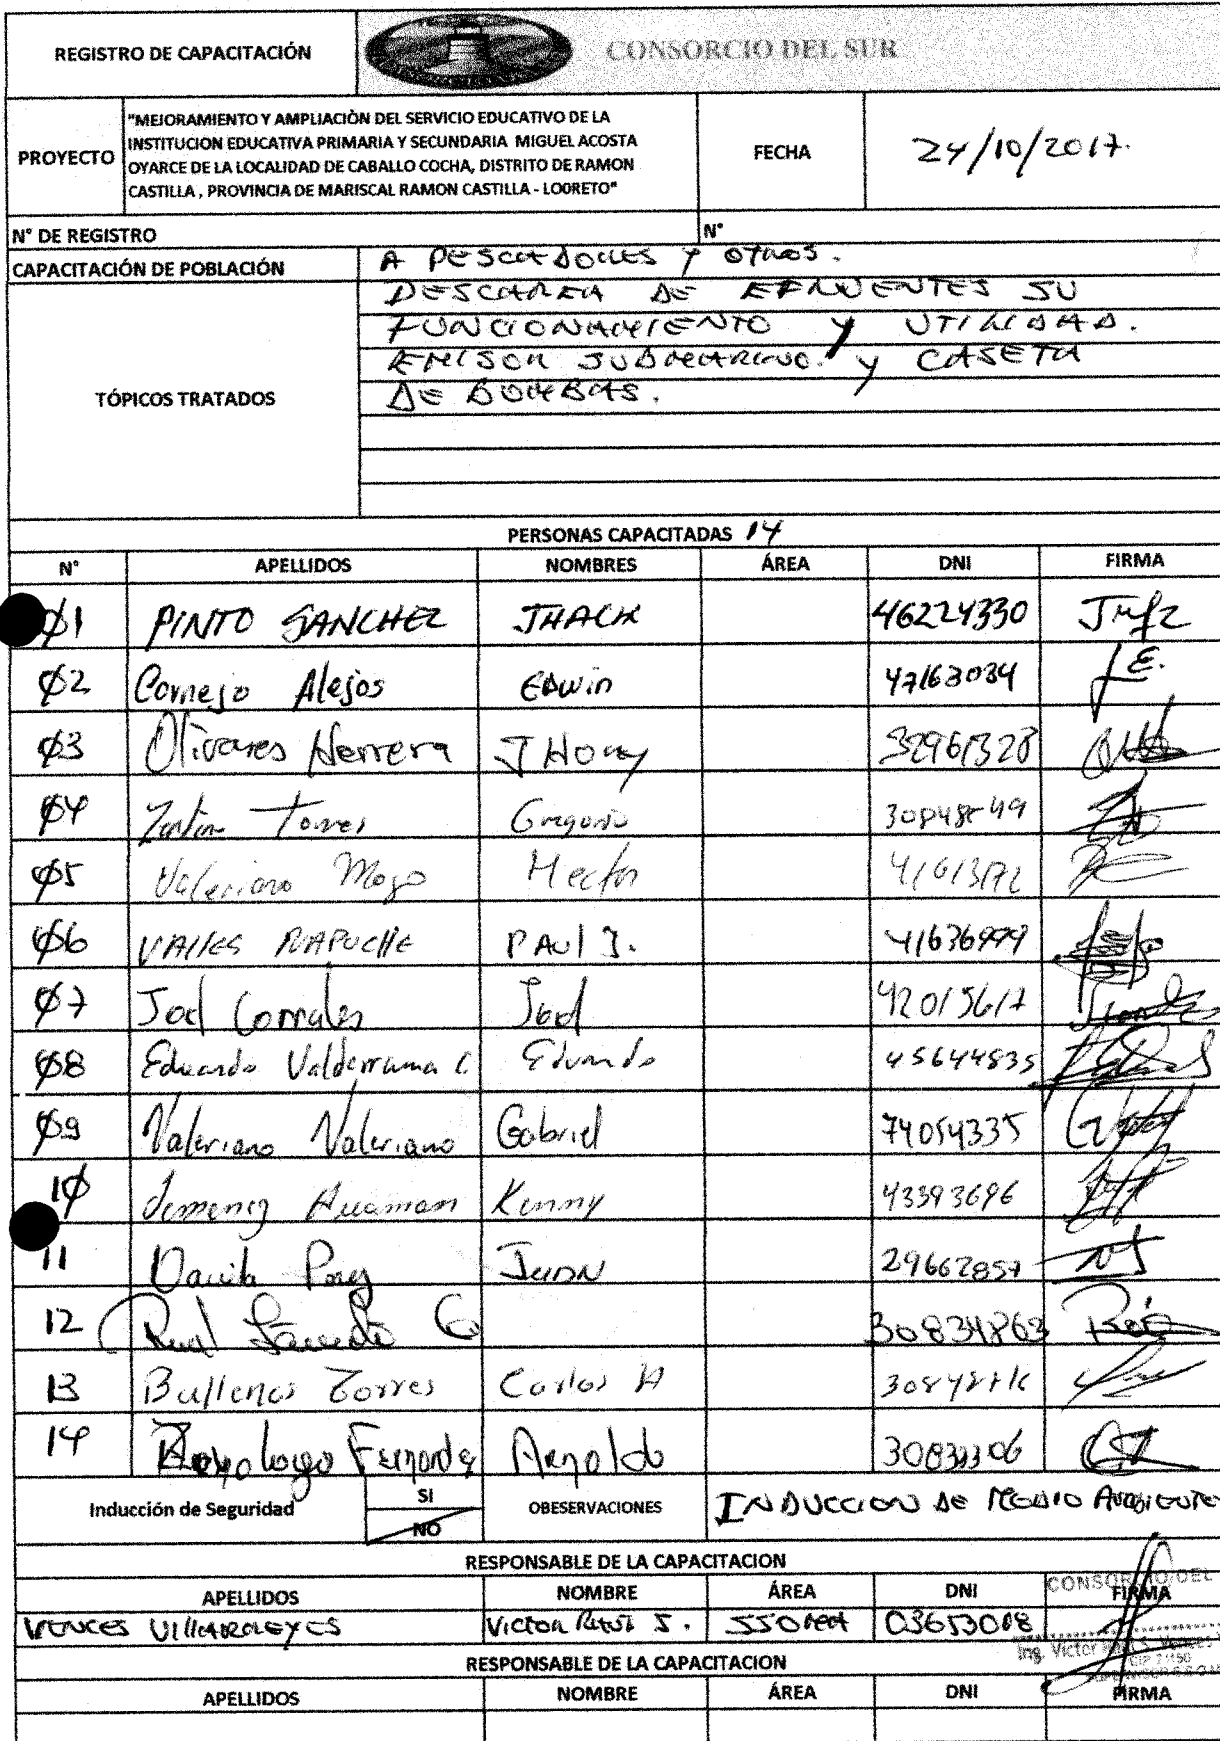 REGISTRO DE CAPACITACIÓN
CONSORCIO DEL SUR
PROYECTO
"MEJORAMIENTO Y AMPLIACIÒN DEL SERVICIO EDUCATIVO DE LA
INSTITUCION EDUCATIVA PRIMARIA Y SECUNDARIA MIGUEL ACOSTA
OYARCE DE LA LOCALIDAD DE CABALLO COCHA, DISTRITO DE RAMON
CASTILLA , PROVINCIA DE MARISCAL RAMON CASTILLA - LOORETO"
FECHA 24/10/2017.
N° DE REGISTRO N°
CAPACITACIÓN DE POBLACIÓN A PESCADORES Y OTROS.
TÓPICOS TRATADOS
DESCARGA DE EFLUENTES SU
FUNCIONAMIENTO Y UTILIDAD.
EMISOR SUBMARINO. Y CASETA
DE BOMBAS.
PERSONAS CAPACITADAS 14
N° APELLIDOS NOMBRES ÁREA DNI FIRMA
01 PINTO SANCHEZ JHACK 46224330
02 Cornejo Alejos EDwin 47163034
03 Olivares Herrera JHony 32961328
04 Torres Gregorio
05 Valeriano Mozo Hector
06 VAlles PAUl J.
07 Joel Corrales Joel 42015617
08 Eduardo Valderrama C. Eduardo 45644835
09 Valeriano Valeriano Gabriel 74054335
10 Jemenez Huaman Kenny 43393696
11 Davila Juan 29662857
12 30834863
13 Ballenas Torres Carlos A
14 Fernandez Arnoldo
Inducción de Seguridad SI NO OBESERVACIONES INDUCCION DE MEDIO AMBIENTE
RESPONSABLE DE LA CAPACITACION
APELLIDOS NOMBRE ÁREA DNI FIRMA
CONSORCIO DEL
VENCES VILLARREYES VICTOR S. SSOMA 03653018
Ing. Victor S. Vences
RESPONSABLE DE LA CAPACITACION
APELLIDOS NOMBRE ÁREA DNI FIRMA